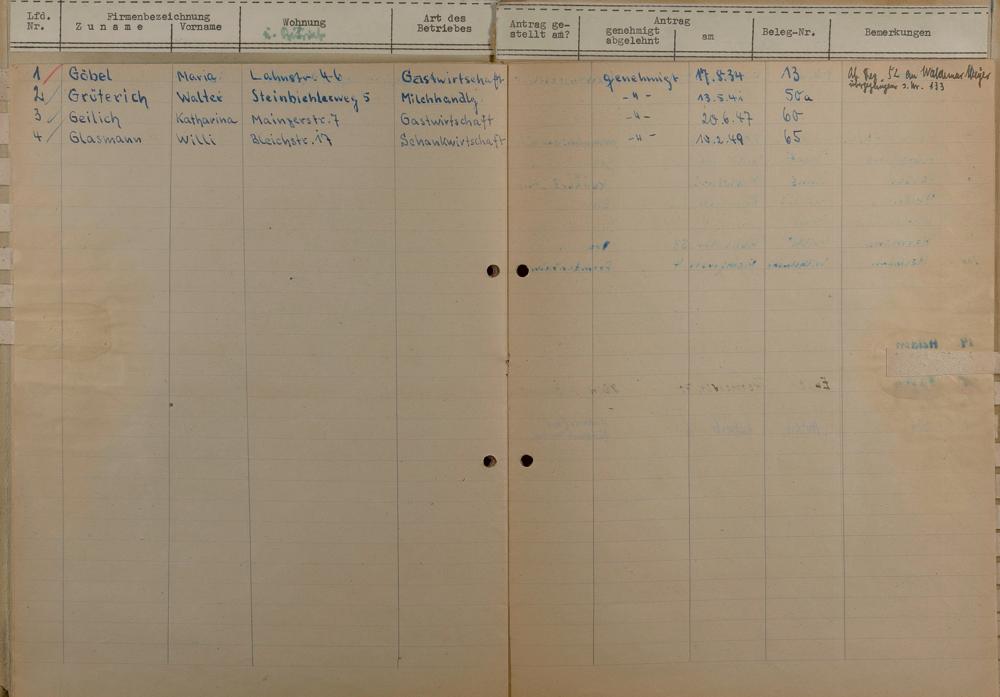 Lfd. Nr. Firmenbezeichnung Zuname Vorname Wohnung Art des Betriebes Antrag gestellt am? Antrag genehmigt abgelehnt am Beleg-Nr. Bemerkungen
1 Göbel Maria Lahnstr. 46 Gastwirtschaft genehmigt 17.8.34 13 52 an Waldemar
s. Nr. 133
2 Grüterich Walter Steinbiehlerweg 5 Milchhandlg -"- 13.5.41 50a
3 Geilich Katharina Mainzerstr. 7 Gastwirtschaft -"- 20.6.47 60
4 Glasmann Willi Bleichstr. 17 Schankwirtschaft -"- 10.2.49 65